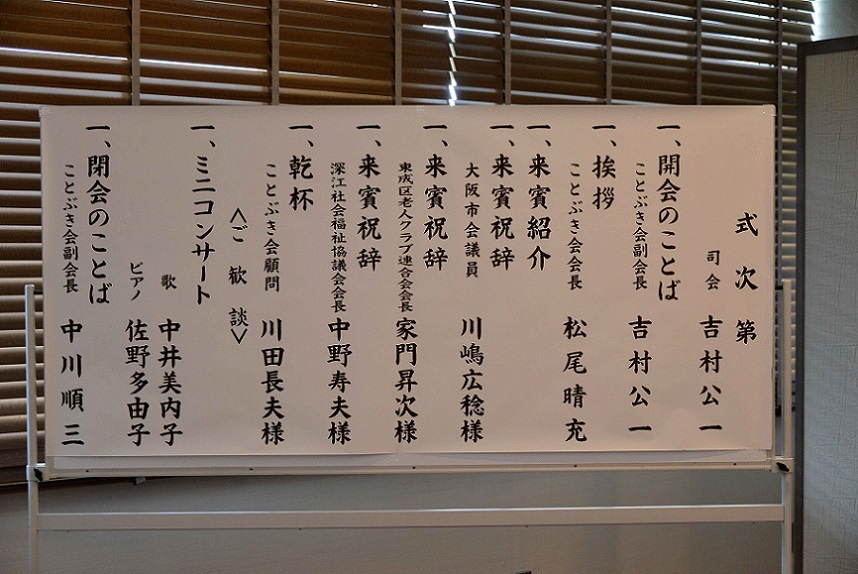 式次第
司会 吉村公一
一、開会のことば
ことぶき会副会長 吉村公一
一、挨拶
ことぶき会会長 松尾晴充
一、来賓紹介
一、来賓祝辞
大阪市会議員 川嶋広稔様
一、来賓祝辞
東成区老人クラブ連合会会長 家門昇次様
一、来賓祝辞
深江社会福祉協議会会長 中野寿夫様
一、乾杯
ことぶき会顧問 川田長夫様
<ご歓談>
一、ミニコンサート
歌 中井美内子
ピアノ 佐野多由子
一、閉会のことば
ことぶき会副会長 中川順三